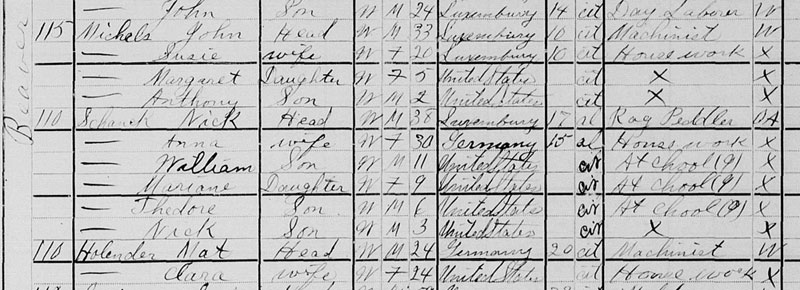 — John Son W M 24 Luxemburg 14 cit Day Laborer W
115 Michels John Head W M 33 Luxemburg 10 cit Machinist W
— Susie wife W F 20 Luxemburg 10 cit House work X
— Margaret Daughter W F 5 United States cit X X
— Anthony Son W M 2 United States cit X X
Beaver
110 Schanck Nick Head W M 38 Luxemburg 17 al Rag Peddler OA
— Anna wife W F 30 Germany 15 al House work X
— William Son W M 11 United States cit At Chool (9) X
— Mariane Daughter W F 9 United States cit At Chool (9) X
— Thedore Son W M 6 United States cit At Chool (9) X
— Nick Son W M 3 United States cit X X
110 Holender Mat Head W M 24 Germany 20 cit Machinist W
— Clara wife W F 24 United States cit House work X